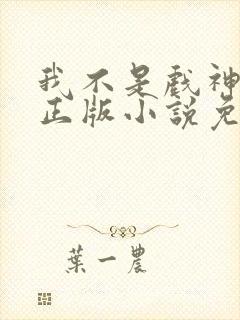 我不是戲神
正版小說免
葉一農